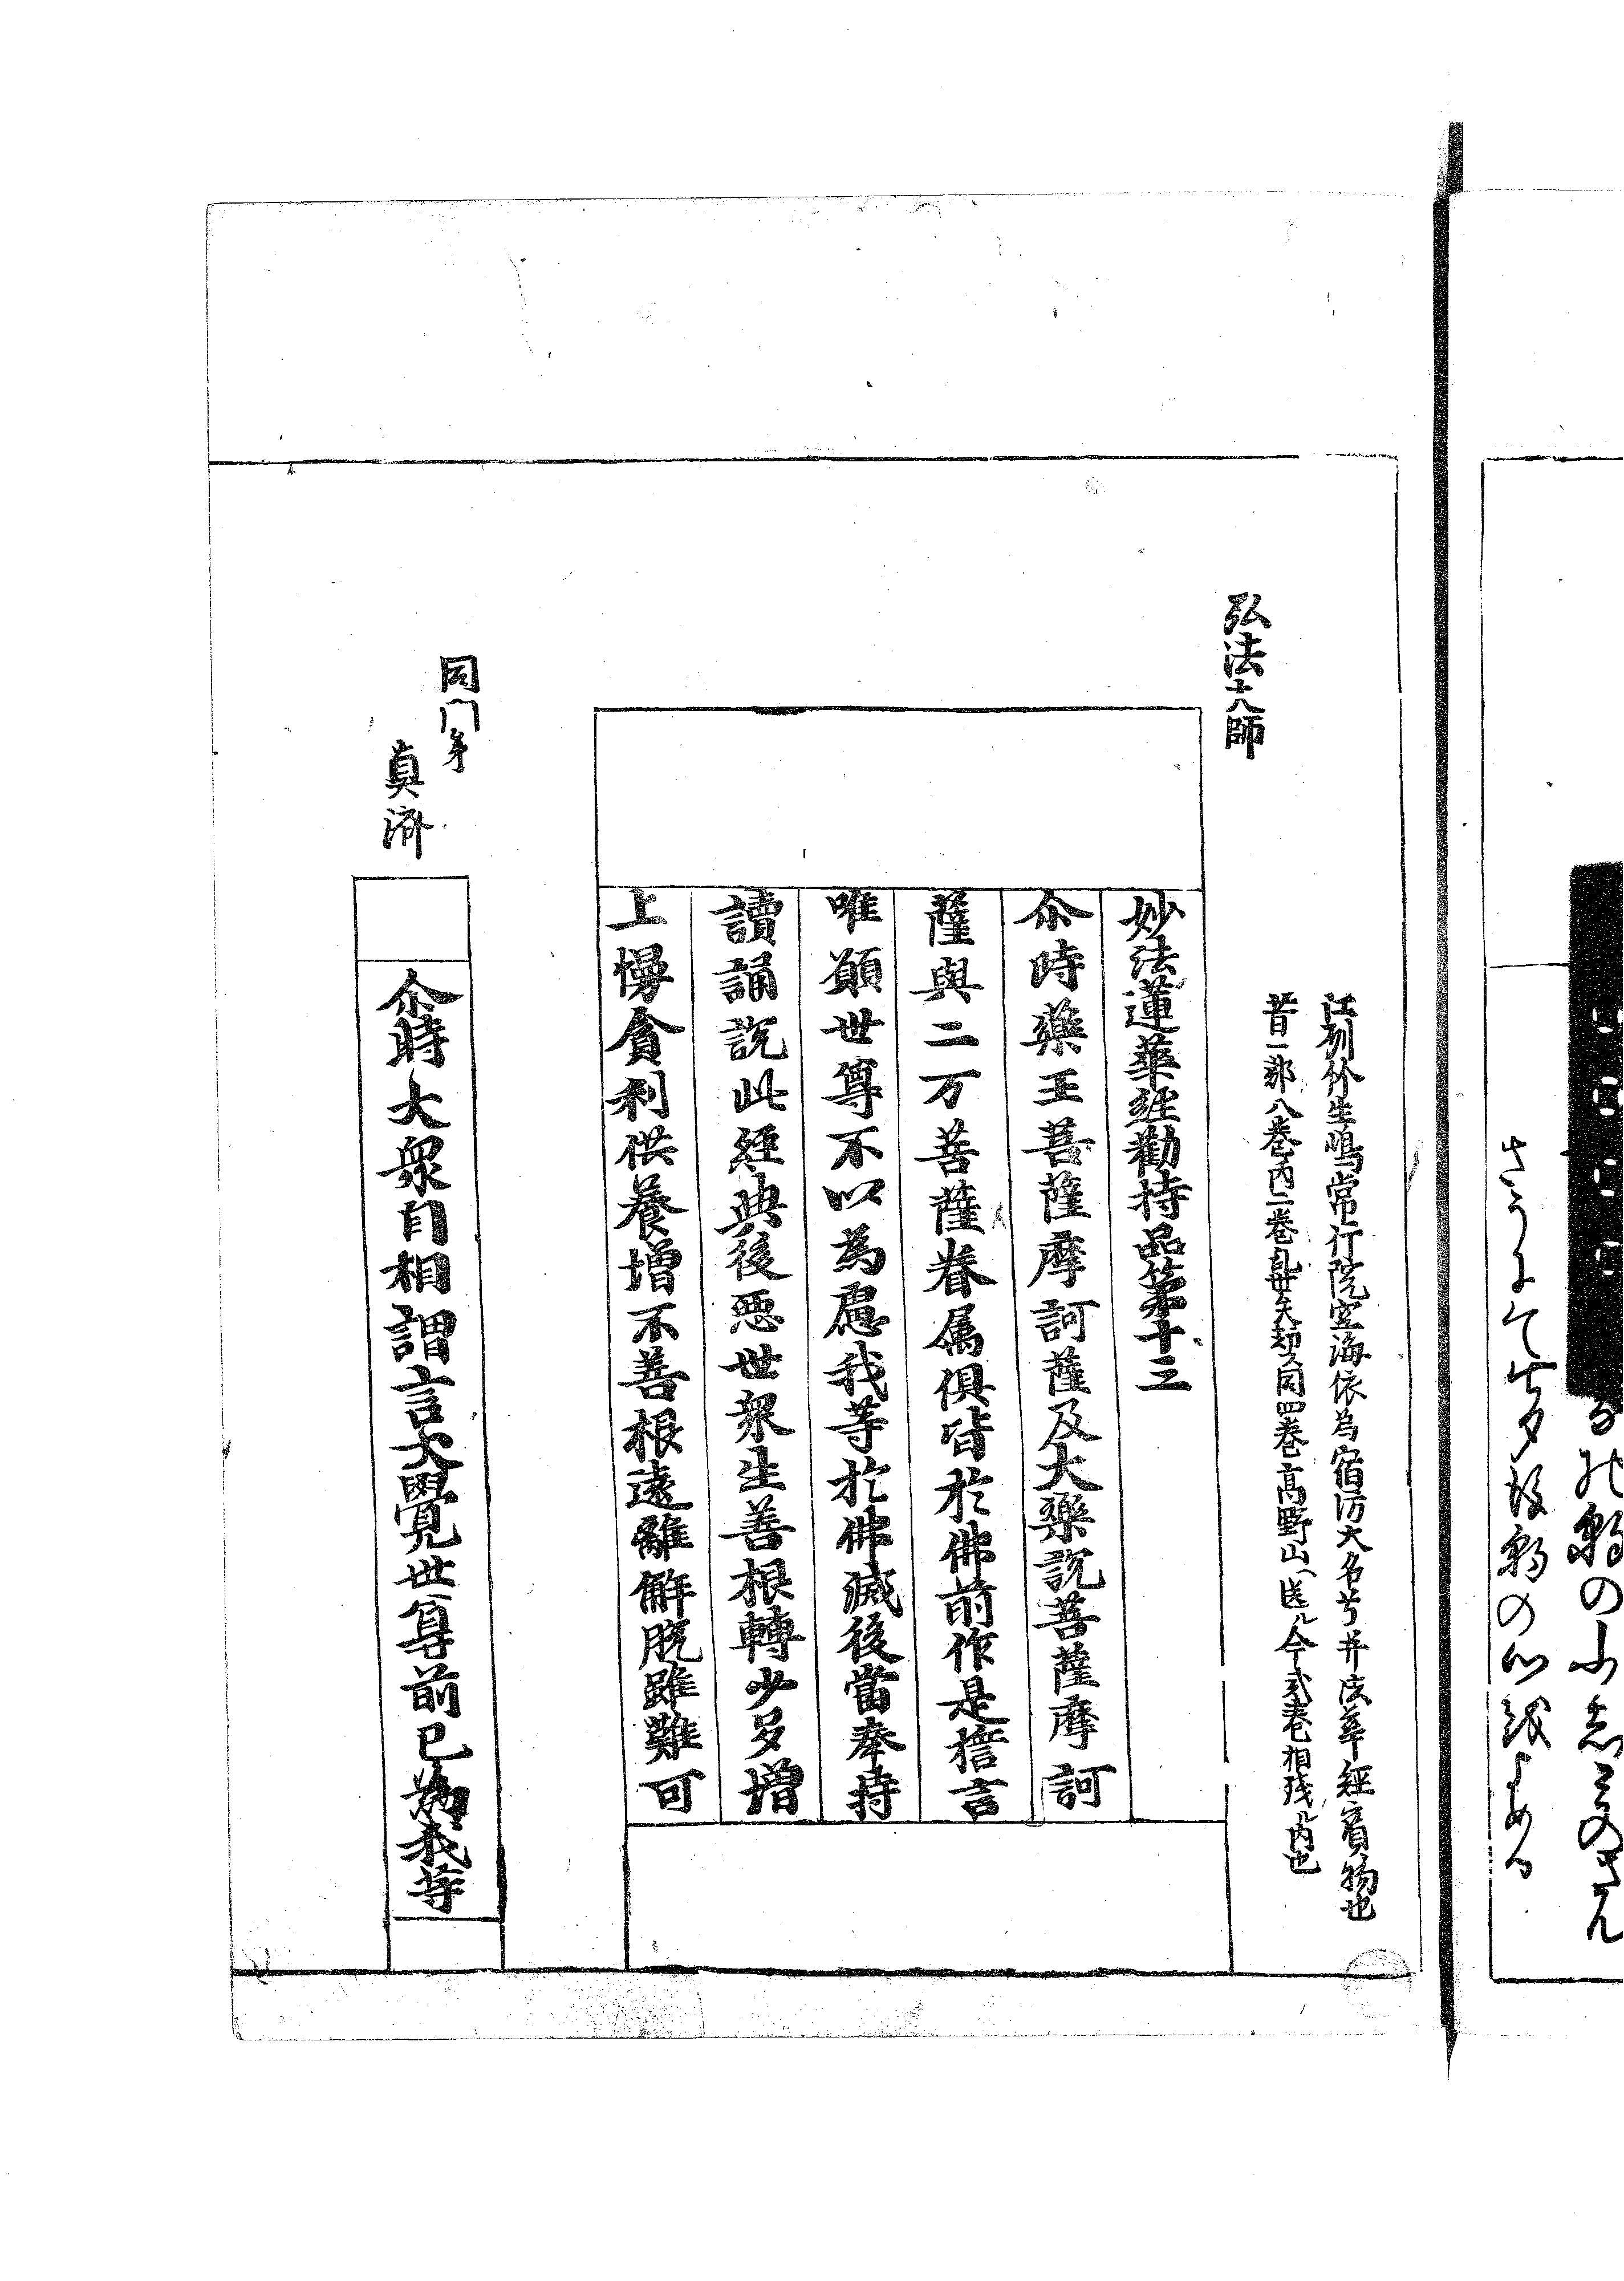 弘法大師
江刕竹生嶋常行院空海依為宿坊大名号并法華經賓物也
昔一部八巻内二巻乱世矢却又同四巻高野山へ送ル今弐巻相残ル内也
妙法蓮華經勸持品第十三
尒時藥王菩薩摩訶薩及大樂説菩薩摩訶
薩與二万菩薩眷属俱皆於佛前作是擔言
唯願世尊不以為慮我等於佛滅後當奉持
讀誦説此經典後惡世衆生善根轉少多增
上慢貪利供養增不善根遠離解脱雖難可
同門弟
真濟
尒時大衆自相謂言大覺世尊前已為我等